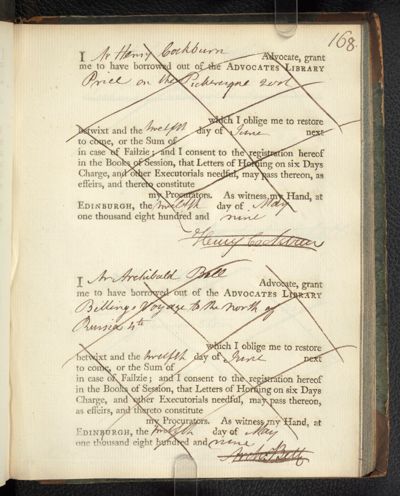 168
I Mr Henry Cockburn Advocate, grant
me to have borrowed out of the ADVOCATES LIBRARY
Price on the Picturesque 2 vol
which I oblige me to restore
betwixt and the twelfth day of June next
to come, or the Sum of
in case of Failzie; and I consent to the registration hereof
in the Books of Session, that Letters of Horning on six Days
Charge, and other Executorials needful, may pass thereon, as
effeirs, and thereto constitute
my Procurators. As witness my Hand, at
EDINBURGH, the twelfth day of May
one thousand eight hundred and nine
Henry Cockburn
I Mr Archibald Bell Advocate, grant
me to have borrowed out of the ADVOCATES LIBRARY
Billings Voyage to the North of
Russia 4to
which I oblige me to restore
betwixt and the twelfth day of June next
to come, or the Sum of
in case of Failzie; and I consent to the registration hereof
in the Books of Session, that Letters of Horning on six Days
Charge, and other Executorials needful, may pass thereon,
as effeirs, and thereto constitute
my Procurators. As witness my Hand, at
EDINBURGH, the twelfth day of May
one thousand eight hundred and nine
Archd Bell